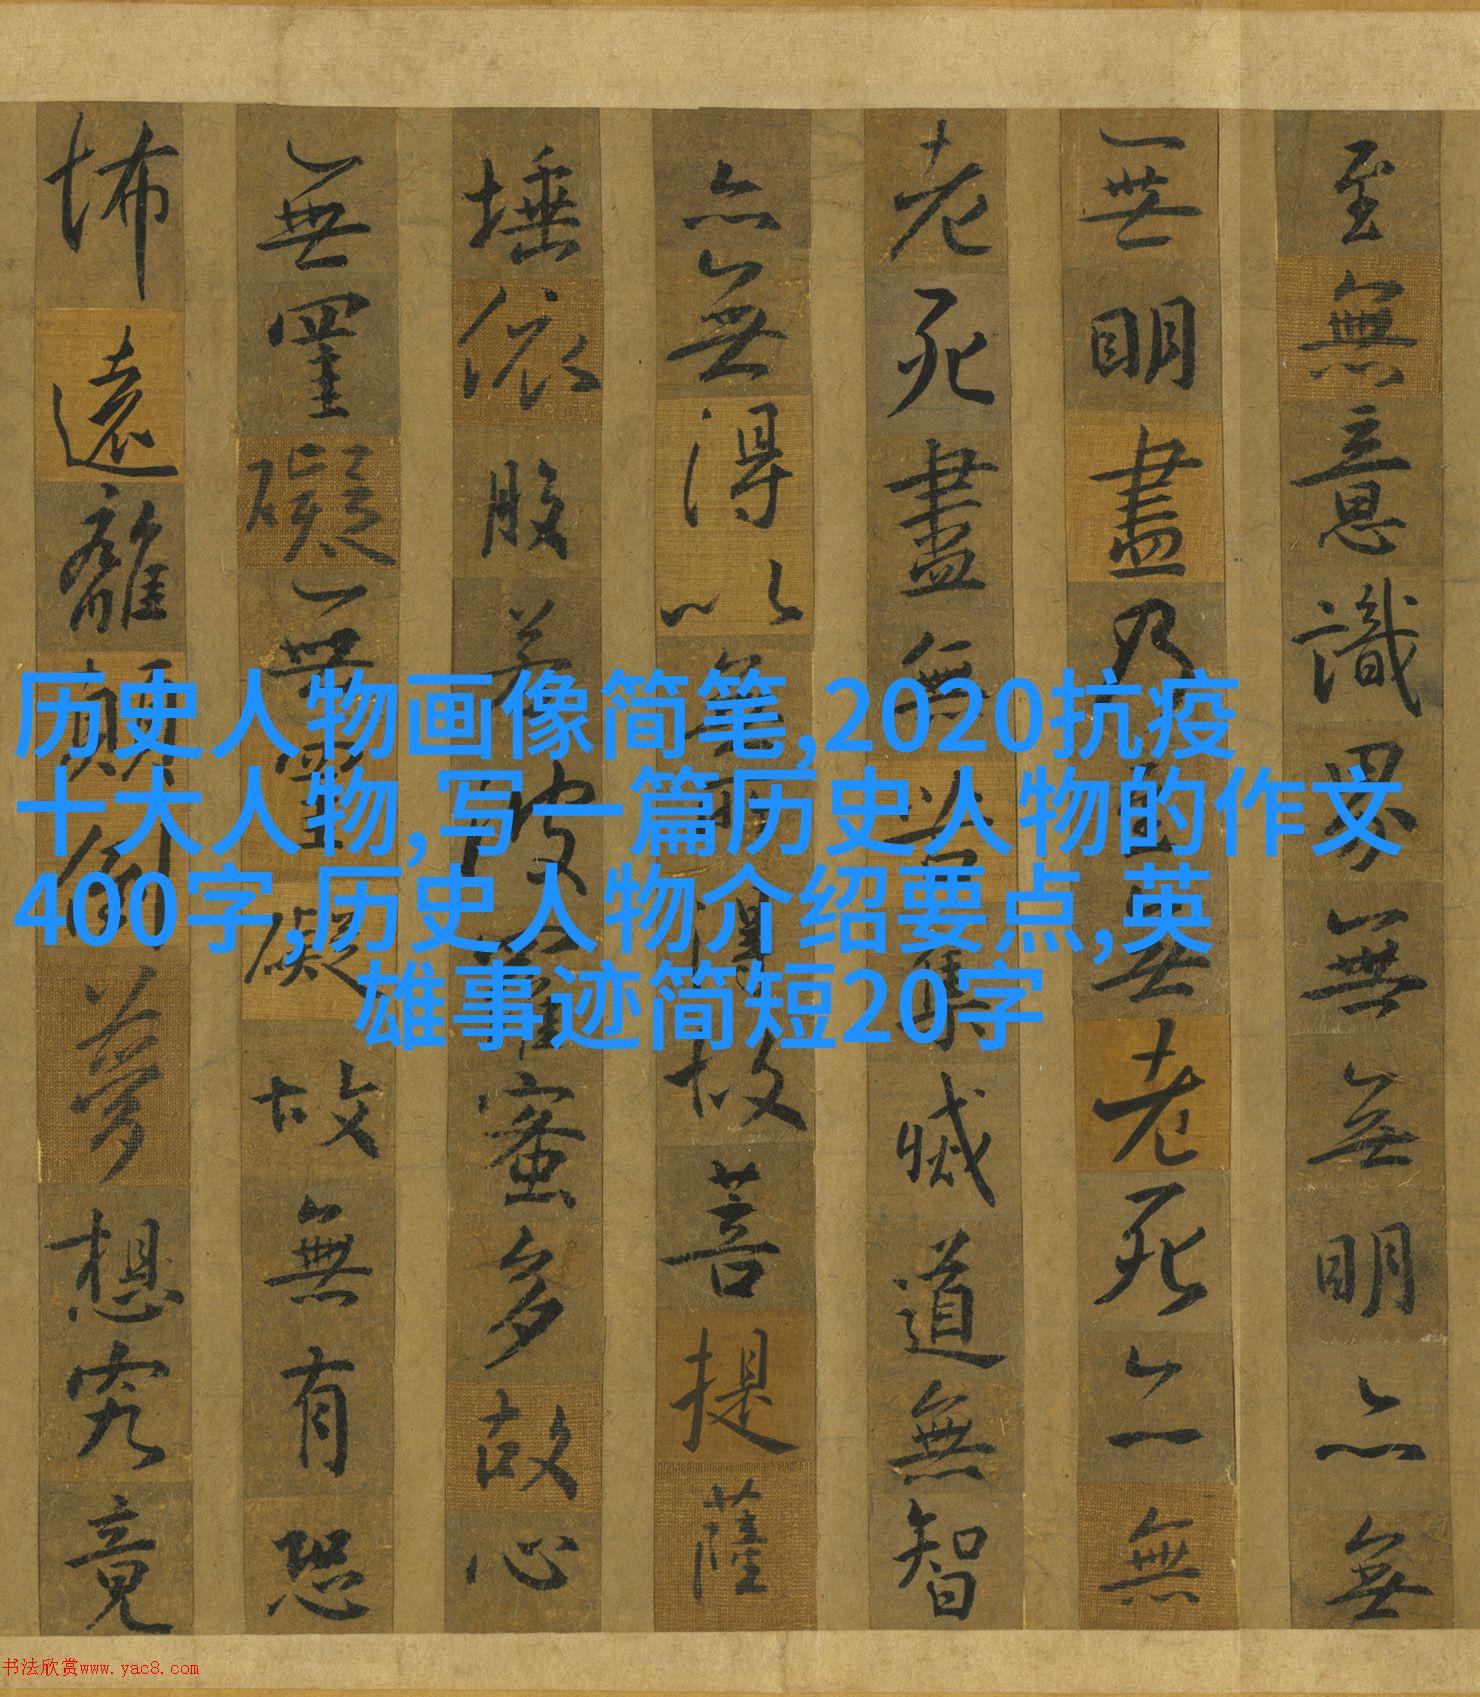 至無意識界無無明亦無
無明盡乃至無老死亦無
老死盡無苦集滅道無智
亦無得以無所得故菩提薩
埵依般若波羅蜜多故心
無罣礙無罣礙故無有恐
怖遠離顛倒夢想究竟
历史人物画像简笔,2020抗疫
十大人物,写一篇历史人物的作文
400字,历史人物介绍要点,英
雄事迹简短20字
书法欣赏www.yac8.com